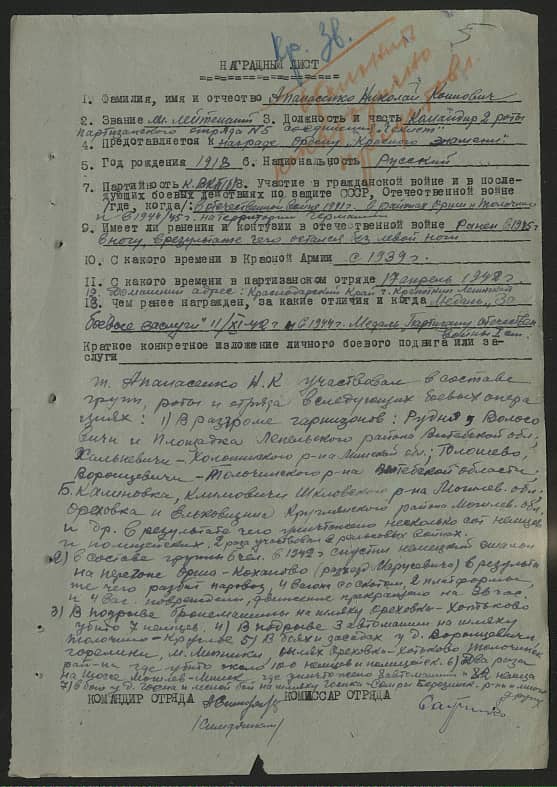 Кр. Зв.
5
НАГРАДНЫЙ ЛИСТ
1. Фамилия, имя и отчество Апанасенко Николай
2. Звание Мл. лейтенант 3. Должность и часть Командир 2 роты
партизанского отряда №5 соединения
4. Представляется к награде Орден „Красного Знамени"
5. Год рождения 1918 6. Национальность Русский
7. Партийность к.ВКП(б) 8. Участие в гражданской войне и в последующих
боевых действиях по защите СССР, Отечественной войне
/где, когда/: в Отечественной войне 1941 г. в районах Орши и Толочино
и в 1944/45 г. на территории Германии
9. Имеет ли ранения и контузии в отечественной войне Ранен в 1945 г
в ногу, в результате чего остался без левой ноги
10. С какого времени в Красной Армии с 1939 г.
11. С какого времени в партизанском отряде 17 апрель 1942 г.
12. Домашний адрес: Краснодарский Край г. Кропоткин
13. Чем ранее награжден, за какие отличия и когда Медаль „За
боевые заслуги" 11/XI-42 г и в 1944 г. Медаль „Партизану отечествен
войны I ст.
Краткое конкретное изложение личного боевого подвига или заслуги
т. Апанасенко Н.К участвовал в составе
групп, роты и отряда в следующих боевых опера
циях: 1) В разгроме гарнизонов: Рудня, Волосо
вичи и Площадка Лепельского района Витебской обл.,
Хальневичи - Холопиничского р-на Минской обл.; Толошево,
Воронцевичи - Толочинского р-на Витебской области.
Б. Калиновка, Климовичи Шкловского р-на Могилев. обл.
Ореховка и Ельковщина Круглянского района Могилев. обл.
и др. в результате чего уничтожено несколько сот немцев
и полицейских. 2 раза участвовал в рельсовых войнах.
2) в составе группы 6 чел. в 1942 г спустил немецкий эшелон
на перегоне Орша - Коханово (разъезд Марусавичи) в результа
те чего разбит паровоз, 4 вагона со скотом, 2 платформы,
и 4 ваг. повреждены, движение прекращено на 36 час.
3) В подрыве бронемашины на шляху Ореховка - Хотьково
убито 7 немцев. 4) В подрыве 3 автомашин на шляху
Толочино - Круглое 5) В боях и засадах у д. Воронцевичи,
м. шлях Ореховка - Хотьково Толочинск.
рай-на где убито около 100 немцев и полицейск. 6) Два раза
на шоссе Могилев - Минск, где уничтожено автомашин и немца
7) в бою у д. и лесной бой на шляху р-на и многих
других
КОМАНДИР ОТРЯДА КОМИССАР ОТРЯДА